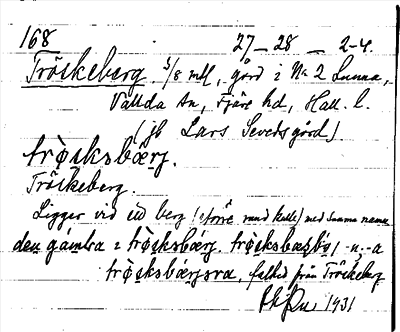 168 27–28 – 2–4.
Tröskeberg, 3/8 mtl, gård i No 2 Lunna,
Vallda sn, Fjäre hd, Hall. l.
(jb Lars Sevedsgård).
trø̀sksbærj.
Tröskeberg.
Ligger vid ett berg (större rund kulle) med samma namn
den gámla i trø̀sksbærj. trø̀sksbæsbó, -n, -a
trø̀sksbærjsra, folket från Tröskeberg
1931